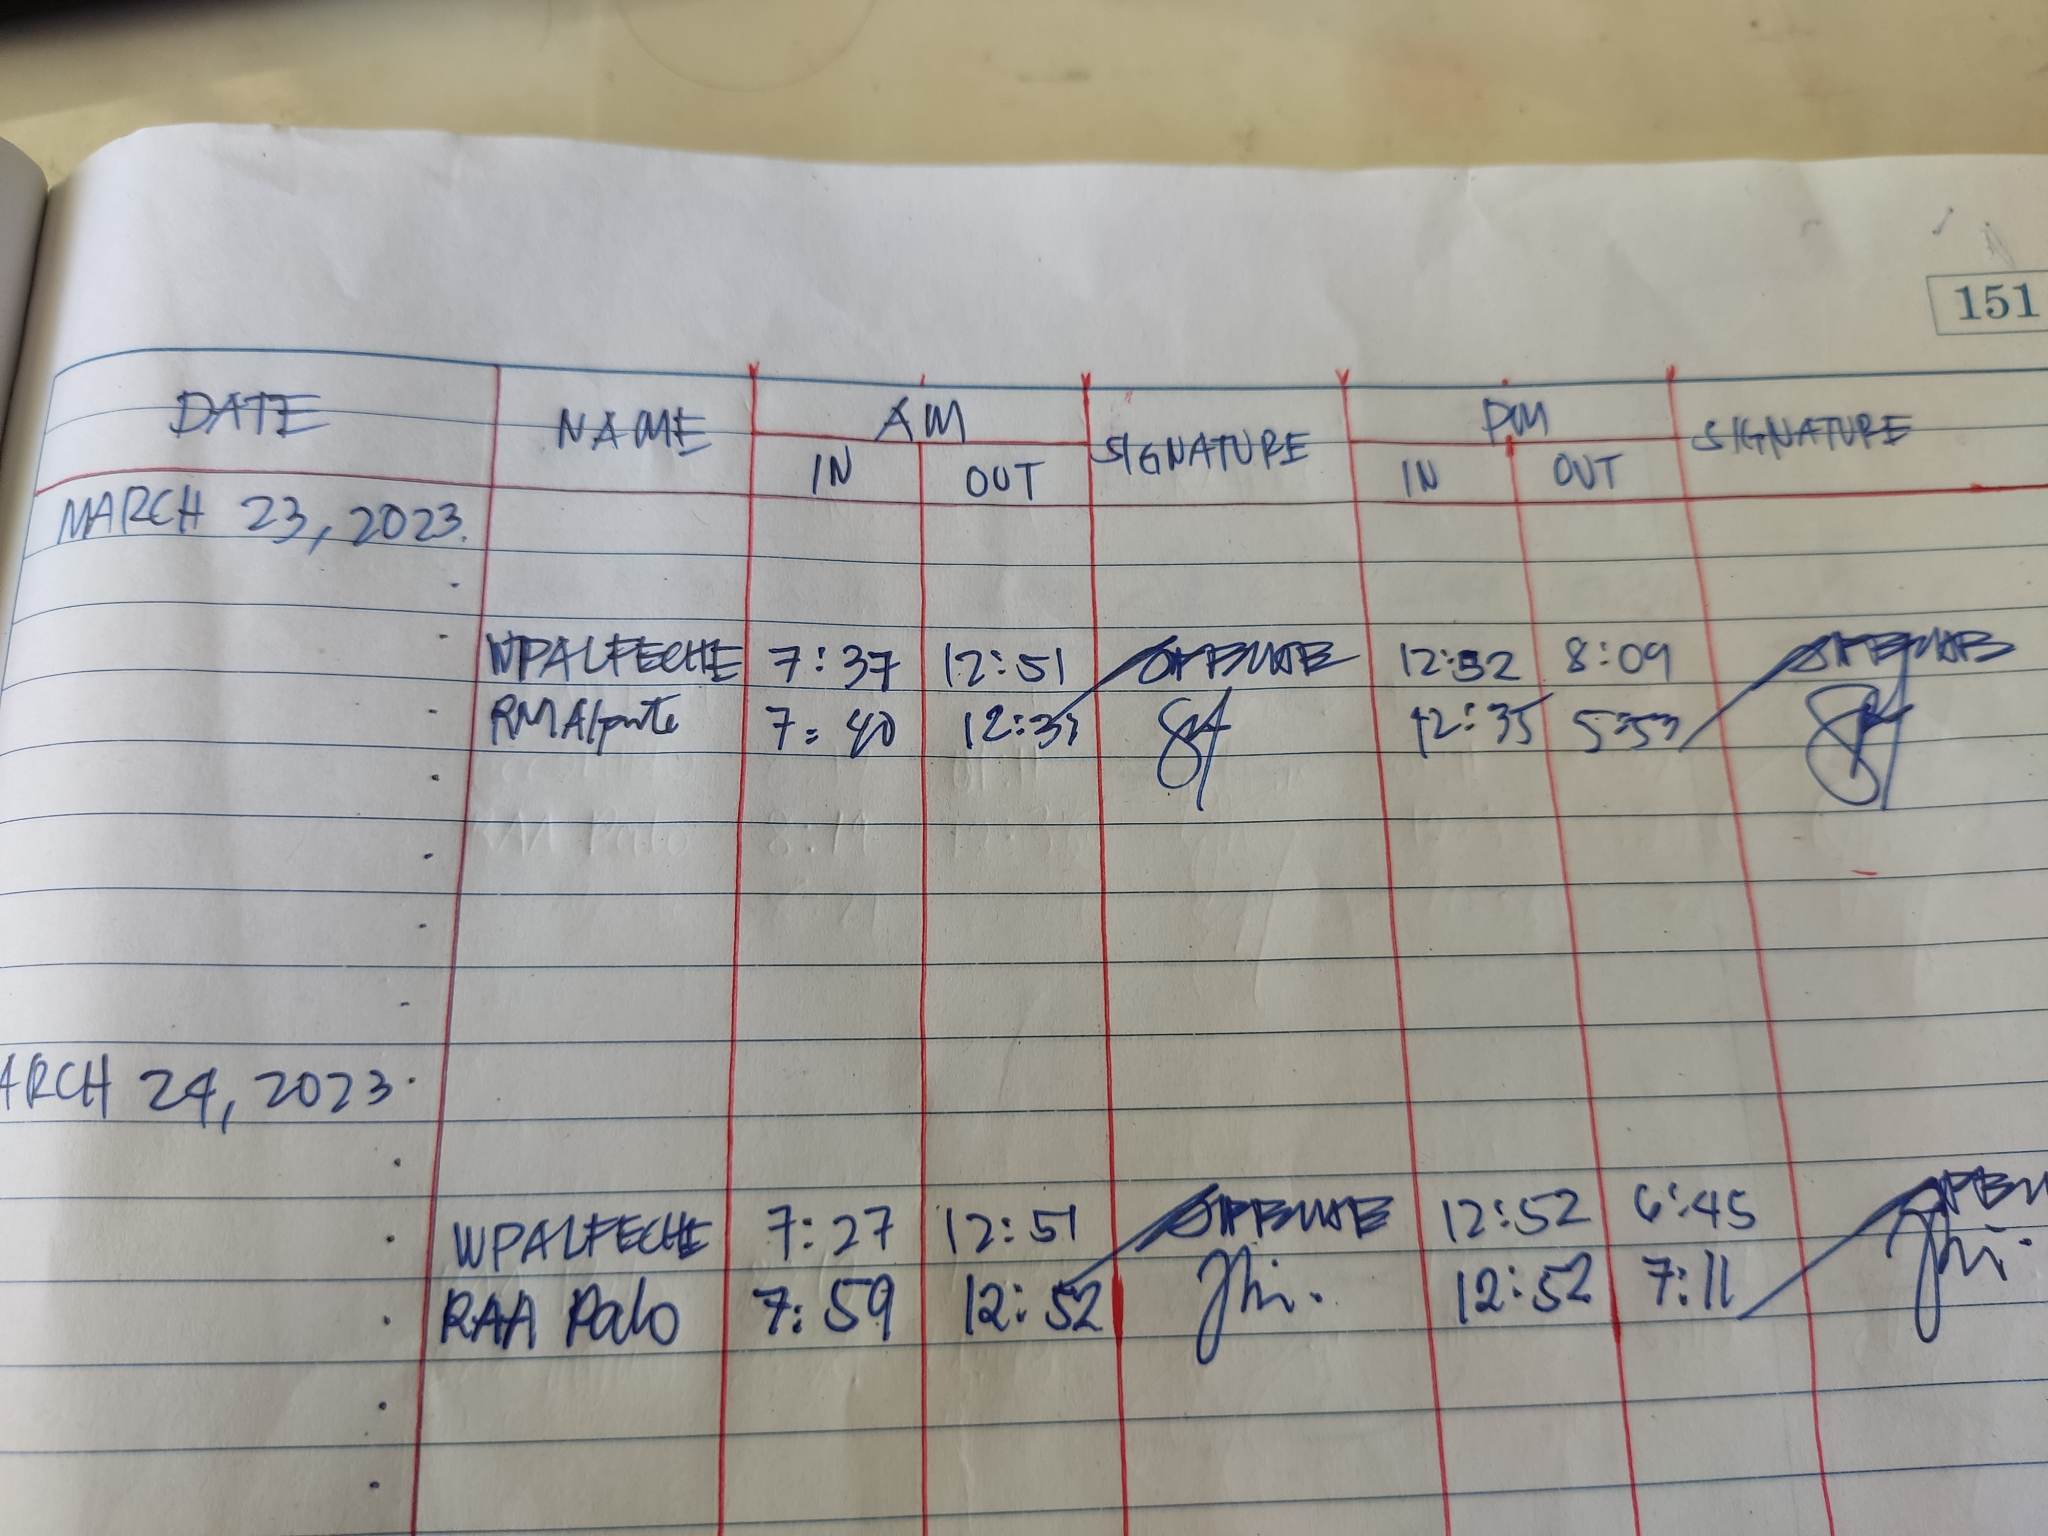 151
DATE NAME AM SIGNATURE PM SIGNATURE
IN OUT IN OUT
MARCH 23, 2023.
WPALFECHE 7:37 12:51 12:52 8:09
RMAlponte 7:40 12:33 12:35 5:53
ARCH 24, 2023.
WPALFECHE 7:27 12:51 12:52 6:45
RAA Palo 7:59 12:52 12:52 7:11